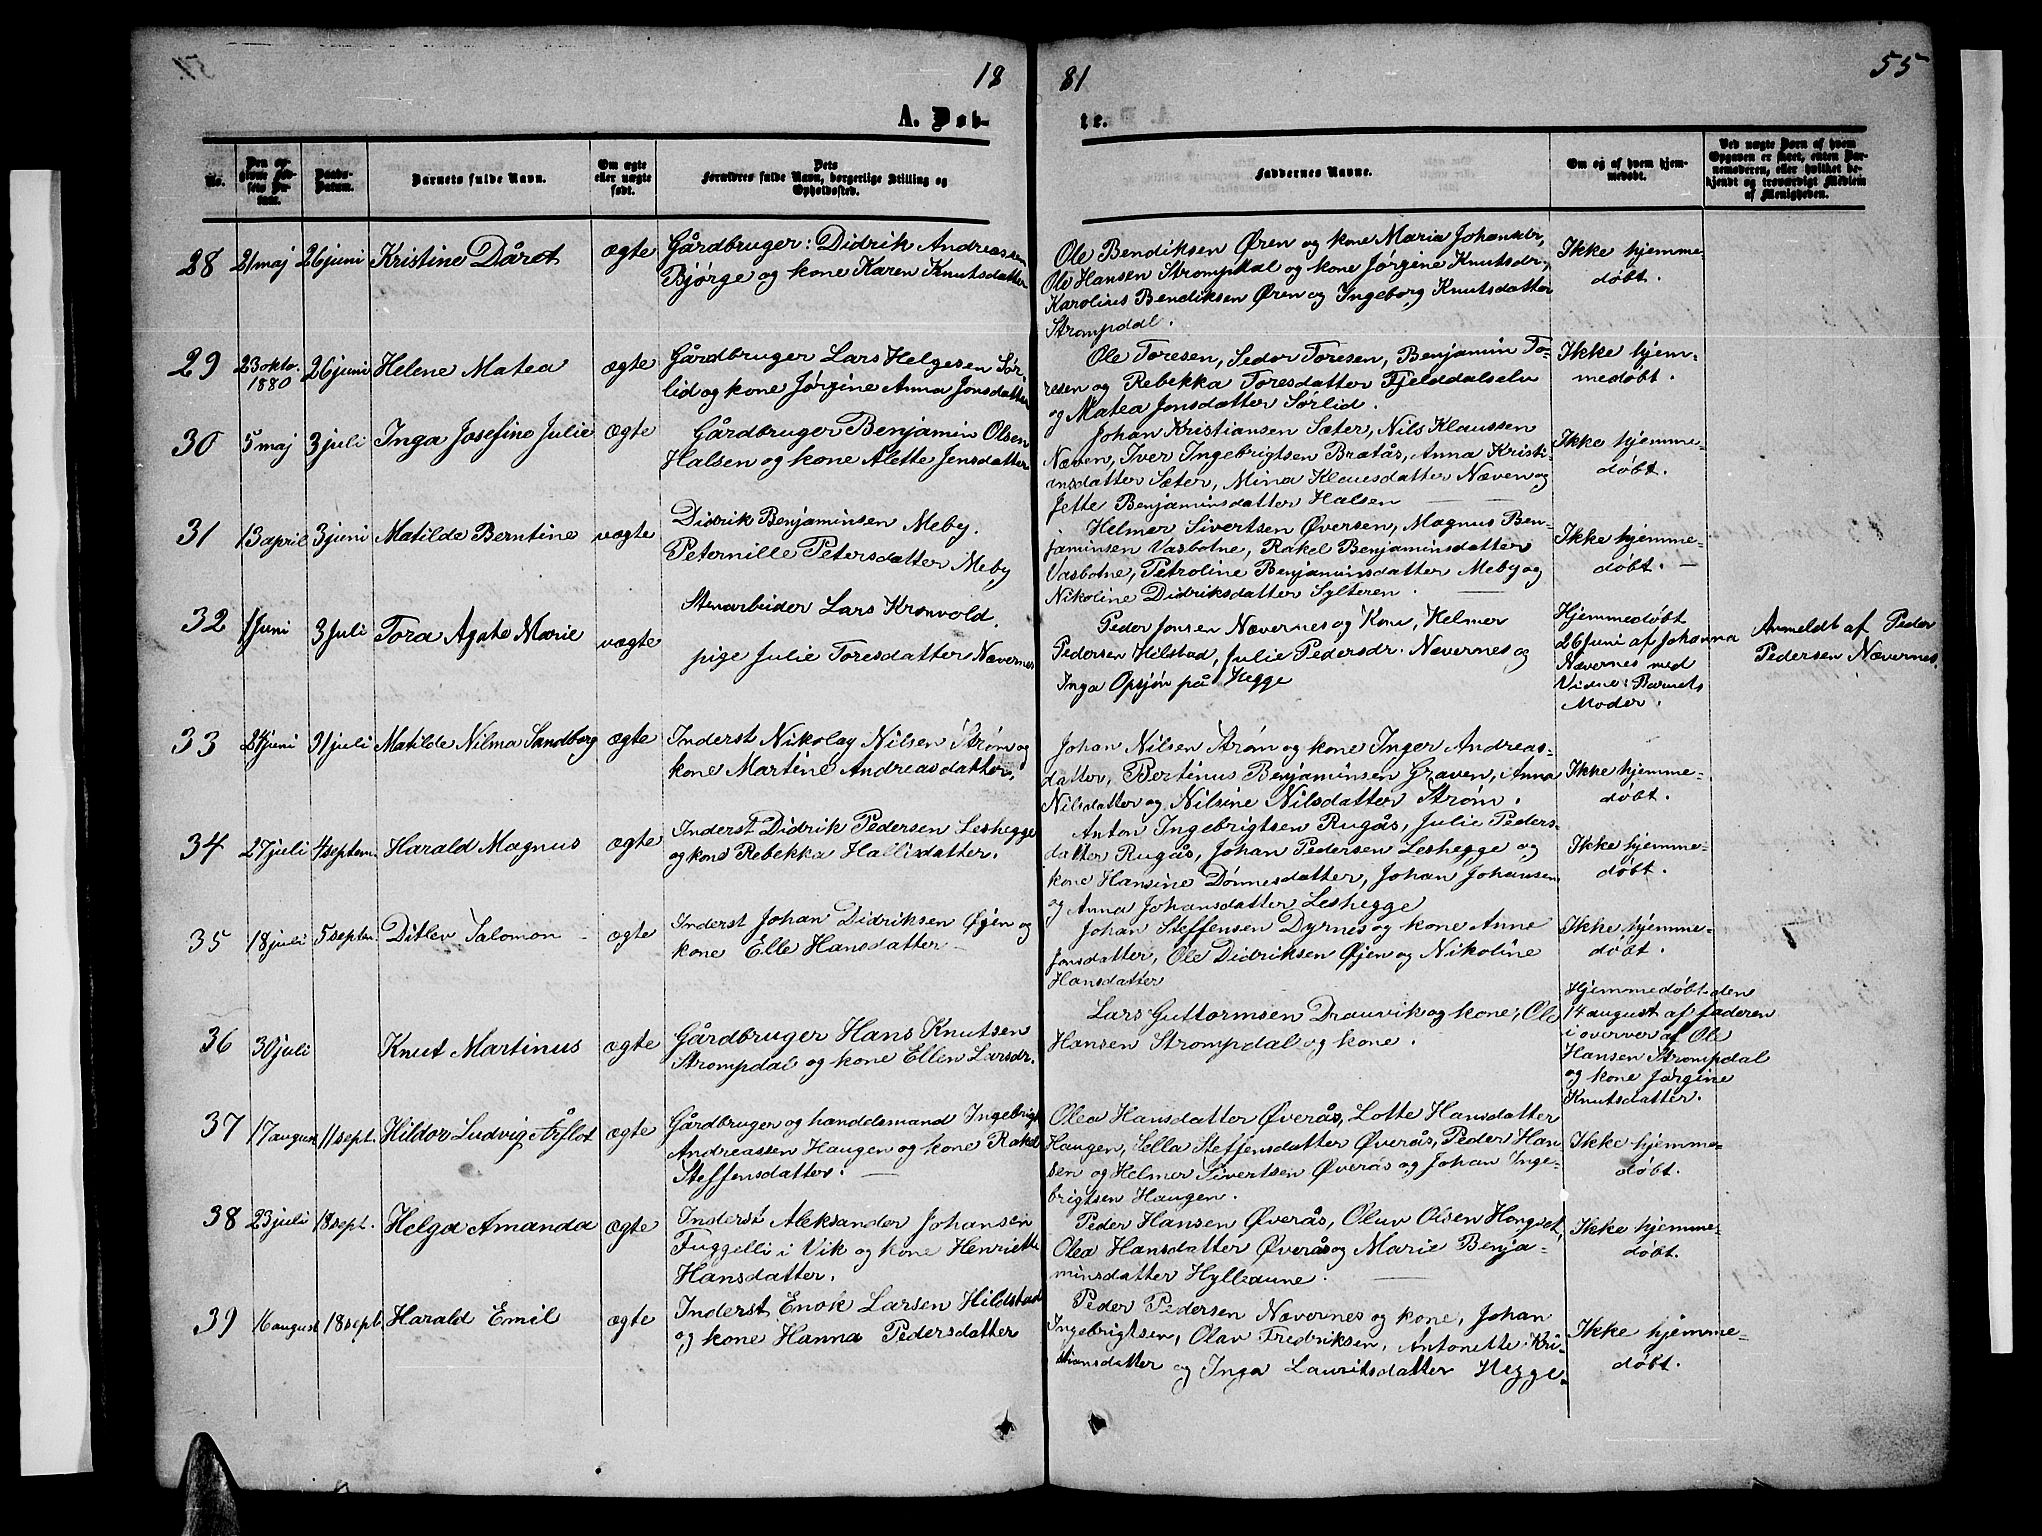 18 81 55
A. Døb- te.
No.
Den opgivne Fødsels Datum.
Daabs-Datum.
Barnets fulde Navn.
Om ægte eller uægte født.
Dets Forældres fulde Navn, borgerlige Stilling og Opholdssted.
Faddernes Navne.
Om og af hvem hjemmedøbt.
Ved uægte Børn af hvem Opgaven er skeet, enten Barnemoderen, eller hvilket bekjendt og troværdigt Medlem af Menigheden.
28 21 maj 26 juni Kristine Dåret ægte
Gårdbruger: Didrik Andreassen
Bjørge og kone Karen Knutsdatter
Ole Bendiksen Øren og kone Maria Johansdr,
Ole Hansen Strompdal og kone Jørgine Knutsdr,
Karolius Bendiksen Øren og Ingeborg Knutsdatter
Strompdal.
Ikke hjemme-
døbt.
29 23 okto. 1880 26 juni Helene Matea ægte
Gårdbruger Lars Helgesen Sør-
lid og kone Jørgine Anna Jonsdatter
Ole Toresen, Sedor Toresen, Benjamin To-
resen og Rebekka Toresdatter Fjelddalselv
og Matea Jonsdatter Sørlid.
Ikke hjem-
medøbt.
30 5 maj 3 juli Inga Josefine Julie ægte
Gårdbruger Benjamin Olsen
Halsen og kone Alette Jensdatter
Johan Kristiansen Sæter, Nils Klaussen
Næven, Iver Ingebrigtsen Bratås, Anna Kristi-
ansdatter Sæter, Mina Klausdatter Næven og
Jette Benjaminsdatter Halsen
Ikke hjemme-
døbt.
31 13 april 3 juni Matilde Berntine uægte
Didrik Benjaminsen Meby.
Peternille Petersdatter Meby
Helmer Sivertsen Øversen, Magnus Ben-
jaminsen Vasbotne, Rakel Benjaminsdatter
Vasbotne, Petroline Benjaminsdatter Meby og
Nikoline Didriksdatter Sylteren.
Ikke hjemme-
døbt.
32 1 Juni 3 Juli Tora Agate Marie uægte
Stenarbeider Lars Kronvold.
pige Julie Toresdatter Nævernes
Peder Jonsen Nævernes og Kone, Helmer
Pedersen Hilstad, Julie Pedersdr. Nævernes og
Inga Opsjøn på Hegge
Hjemmedøbt
26 Juni af Johanna
Nævernes med
Vidne: Barnets
Moder.
Anmeldt af Peder
Pedersen Nævernes.
33 24 juni 31 juli Matilde Nilma Sandborg ægte
Inderst Nikolay Nilsen Strøm og
kone Martine Andreasdatter.
Johan Nilsen Strøm og kone Inger Andreas-
datter, Bertinus Benjaminsen Graven, Anna
Nilsdatter og Nilsine Nilsdatter Strøm.
Ikke hjemme-
døbt.
34 27 juli 4 septem. Harald Magnus ægte
Inderst Didrik Pedersen Leshegge
og kone Rebekka Hallisdatter.
Anton Ingebrigtsen Rugås, Julie Peders-
datter Rugås, Johan Pedersen Leshegge og
kone Hansine Dønnesdatter, Johan Johansen
og Anna Johansdatter Leshegge
Ikke hjemme-
døbt.
35 18 juli 5 septm. Ditlev Salomon ægte
Inderst Johan Didriksen Øjen og
kone Elle Hansdatter
Johan Steffensen Dyrnes og kone Anne
Jonsdatter, Ole Didriksen Øjen og Nikoline
Hansdatter
Ikke hjemme-
døbt.
36 30 juli Knut Martinus ægte
Gårdbruger Hans Knutsen
Strompdal og kone Ellen Larsdr.
Lars Guttormsen Drauvik og kone, Ole
Hansen Strompdal og kone.
Hjemmedøbt den
14 august af faderen
i overver af Ole
Hansen Strompdal
og kone Jørgine
Knutsdatter.
37 17 august 11 sept. Hildor Ludvig Årflot ægte
Gårdbruger og handelsmand Ingebrigt
Andreassen Haugen og kone Rakel
Steffensdatter.
Olea Hansdatter Øverås, Lotte Hansdatter
Haugen, Sella Steffensdatter Øverås, Peder Han-
sen og Helmer Sivertsen Øverås og Johan Inge-
brigtsen Haugen.
Ikke hjemme-
døbt.
38 23 juli 18 sept. Helga Amanda ægte
Inderst Aleksander Johansen
Fuggelli i Vik og kone Henriette
Hansdatter.
Peder Hansen Øverås, Oluv Olsen Hongset,
Olea Hansdatter Øverås og Marie Benja-
minsdatter Hylleaune.
Ikke hjemme-
døbt.
39 16 august 18 sept. Harald Emil ægte
Inderst Enok Larsen Hildstad
og kone Hanna Pedersdatter
Peder Pedersen Nævernes og kone, Johan
Ingebrigtsen, Olav Fredriksen, Antonette Kri-
stiansdatter og Inga Lauritsdatter Hegge.
Ikke hjemme-
døbt.